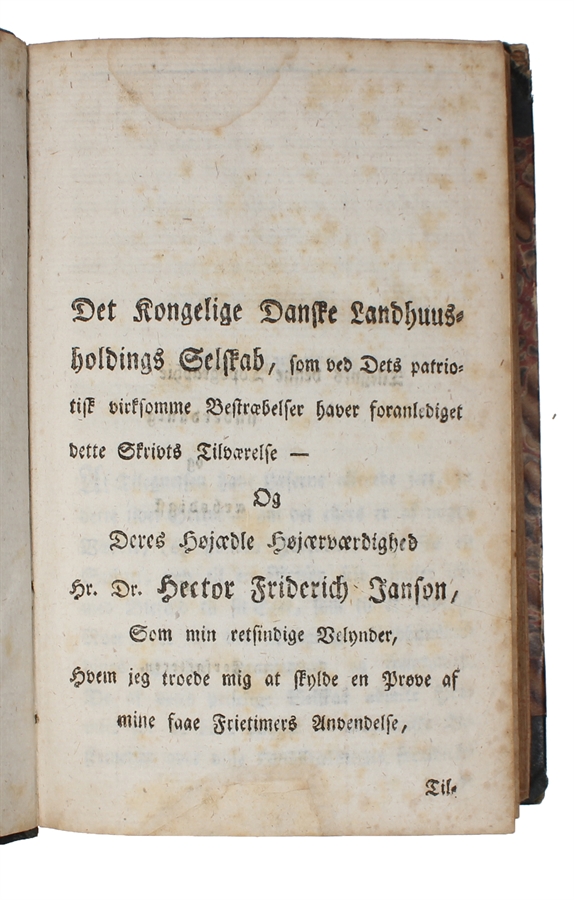 Det Kongelige Danske Landhuus-
holdings Selskab, som ved Dets patrio-
tisk virksomme Bestræbelser haver foranlediget
dette Skrivts Tilværelse —
Og
Deres Højædle Højærværdighed
Hr. Dr. Hector Friderich Janson,
Som min retsindige Velynder,
Hvem jeg troede mig at skylde en Prøve af
mine faae Frietimers Anvendelse,
Til-